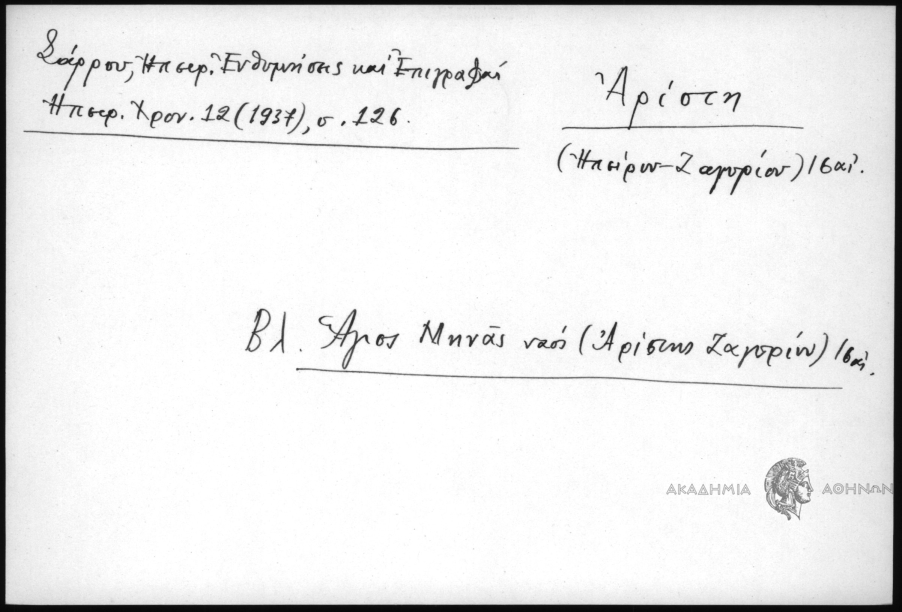 Σάρρου, Ἠπειρ. Ἐνθυμήσεις καὶ Ἐπιγραφαὶ
Ἠπειρ. Χρον. 12 (1937), σ. 126.
Ἀρίστη
(Ἠπείρου-Ζαγορίου) 16 αἰ.
Βλ. Ἅγιος Μηνᾶς ναός (Ἀρίστης Ζαγορίου) 16 αἰ.
ΑΚΑΔΗΜΙΑ ΑΘΗΝΩΝ